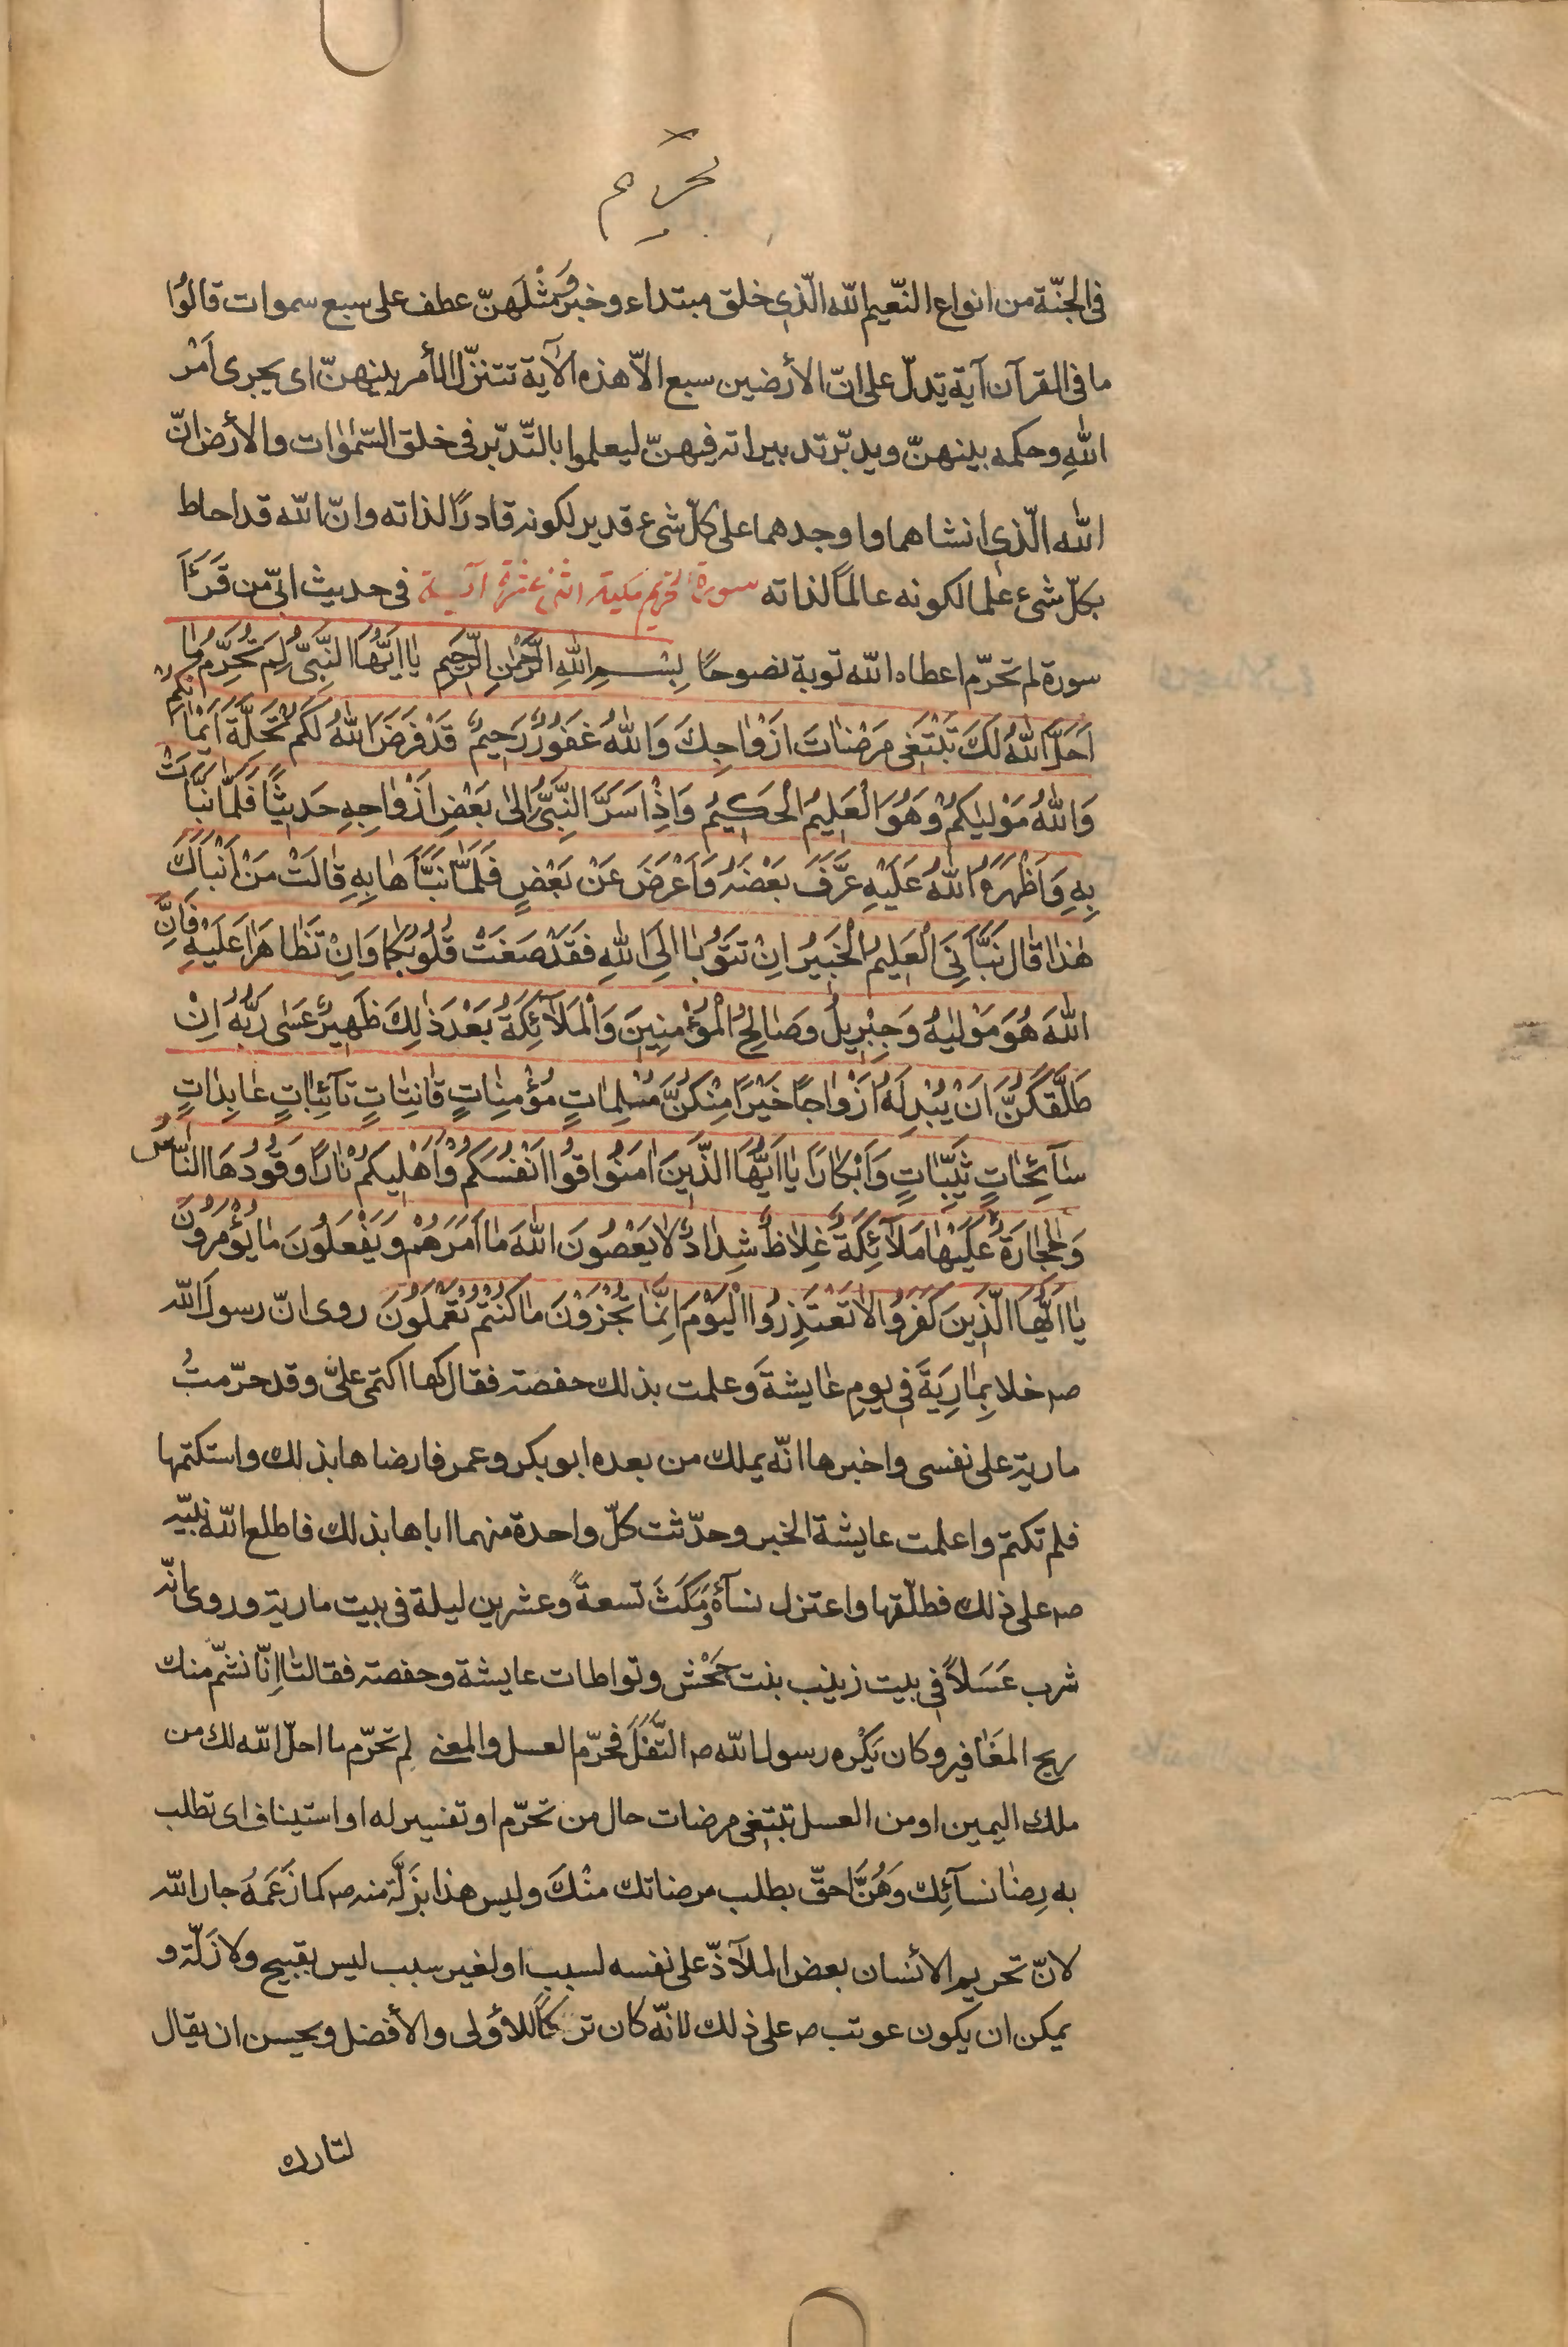 تحريم
فى الجنّة من انواع النّعيم الله الّذى خلق مبتداء وخبر وَمِثْلَهنّ عطف على سبع سموات قالوُا
ما فى القرآن آية تدلّ على انّ الأرضين سبع الاّ هذه الآية تتنزّل الأمر بينهنّ اى يجرى اَمْر
اللهِ وحكمه بينهنّ ويدبّر تدبيراته فيهنّ ليعلموا بالتّدبّر فى خلق السّمٰوٰات والأرض انّ
الله الّذى انشاهما واوجدهما على كلّ شىء قدير لكونه قادرًا لذاته وانّ الله قد احاط
بكلّ شىء علما لكونه عالمًا لذاته سورة التحريم مكية اثنى عشرة آية فى حديث ابىّ من قَرَءَاَ
سورة لم تحرّم اعطاه الله توبة نصوحًا بِسْمِ اللهِ الرَّحْمٰنِ الرَّحيَمِ يٰا اَيُّهَا النَّبِىُّ لِمَ تُحَرِّمُ مٰا
اَحَلَّ اللهُ لَكَ تَبْتَغى مَرْضٰاتَ اَزْوٰاجِكَ وَاللهُ غَفوُرٌ رَحيمٌ قَدْ فَرَضَ اللهُ لَكُمْ تَحِلَّةَ اَيْمٰانِكُمْ
وَاللهُ مَوْليٰكُمْ وَهُوَ الْعَليمُ الْحَكيمُ وَاِذْ اَسَرَّ النَّبِىُّ اِلىٰ بَعْضِ اَزْوٰاجِهِ حَديثًا فَلَمّٰا نَبَّاَتْ
بِهِ وَاَظْهَرَهُ اللهُ عَلَيْهِ عَرَّفَ بَعْضَهُ وَاَعْرَضَ عَنْ بَعْضٍ فَلَمّٰا نَبَّاَهٰا بِهِ قٰالَتْ مَنْ اَنْبَاَكَ
هٰذٰا قٰالَ نَبَّاَنِىَ الْعَليمُ الْخَبيرُ اِنْ تَتوُبٰا اِلَى اللهِ فَقَدْ صَغَتْ قُلوُبُكُمٰا وَاِنْ تَظٰاهَرٰا عَلَيْهِ فَاِنَّ
اللهَ هُوَ مَوْليٰهُ وَجِبْريلُ وَصٰالِحُ الْمُؤْمِنينَ وَالْمَلآئِكَةُ بَعْدَ ذٰلِكَ ظَهيرٌ عَسٰى رَبُّهُ اِنْ
طَلَّقَكُنَّ اَنْ يُبْدِلَهُ اَزْوٰاجًا خَيْرًا مِنْكُنَّ مُسْلِمٰاتٍ مُؤْمِنٰاتٍ قٰانِتٰاتٍ تٰآئِبٰاتٍ عٰابِدٰاتٍ
سٰآئِحٰاتٍ ثَيِّبٰاتٍ وَاَبْكٰارًا يٰا اَيُّهَا الَّذينَ اٰمَنوُا قوُا اَنْفُسَكُمْ وَاَهْليكُمْ نٰارًا وَقوُدُهَا النّٰاسُ
وَالْحِجٰارَةُ عَلَيْهٰا مَلآئِكَةٌ غِلاٰظٌ شِدٰادٌ لاٰ يَعْصوُنَ اللهَ مٰا اَمَرَهُمْ وَيَفْعَلوُنَ مٰا يُؤْمَروُنَ
يٰا اَيُّهَا الَّذينَ كَفَروُا لاٰ تَعْتَذِروُا الْيَوْمَ اِنَّمٰا تُجْزَوْنَ مٰا كُنْتُمْ تَعْمَلوُنَ روى انّ رسولَ الله
صه خلا بِمٰارِيَةَ فى يومِ عٰايشةَ وعلمت بذلك حفصة فقال لها اكتمى علىّ وقد حرّمتُ
مارية على نفسى واخبرها انّه يملك من بعده ابوبكر وعمر فارضاها بذلك واستكتمها
فلم تكتم واعلمت عايشة الخبر وحدّثت كلّ واحدة منهما اباها بذلك فاطلع الله نبيّه
صه على ذلك فطلّقها واعتزل نسآءَهُ ومَكَثَ تسعةً وعشرين ليلة فى بيت مارية وروى انّه
شرب عَسَلاً فى بيت زينب بنت جَحْش وتواطات عايشة وحفصة فقالتٰا اِنّا نشمّ منك
ريح المغَافير وكان يَكْره رسول الله صه التَّفَلَ فحرّم العسل والمعنى لِم تحرّم ما احلّ الله لك من
ملك اليمين او من العسل تبتغى مرضات حال من تحرّم او تفسير له او استيناف اى تطلب
به رِضٰا نسآئِك وَهُنَّ احقّ بطلب مرضاتك منْكَ وليس هذا بزَلَّة منه صه كما زَعَمَهُ جار الله
لانّ تحريم الأنسان بعض الملآذّ على نفسه لسبب او لغير سبب ليس بقبيح ولا زَلّة و
يمكن ان يكون عوتب صه على ذلك لانّه كان تركًا للأولى والأفضل ويحسن ان يقال
لتارك